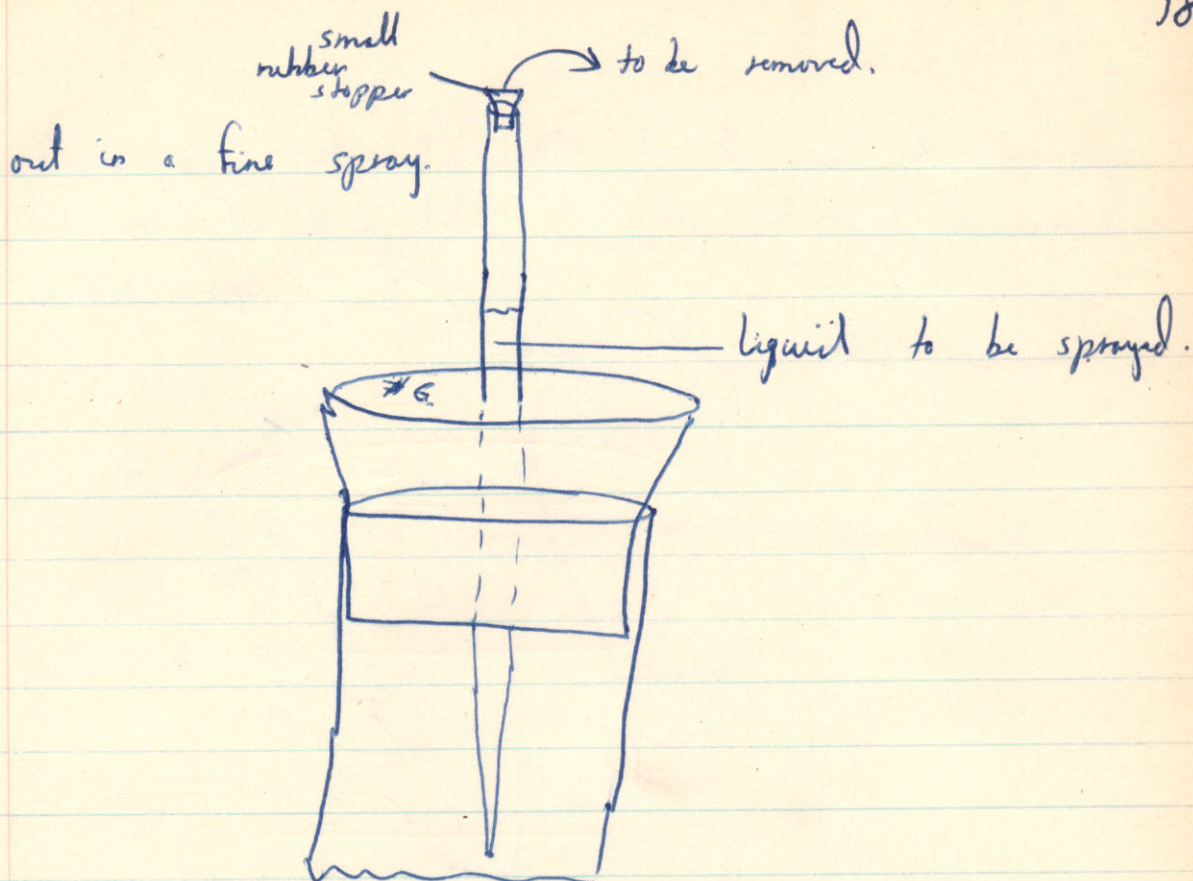 small
rubber
stopper
to be removed.
out in a fine spray.
Liquid to be sprayed.
# 6